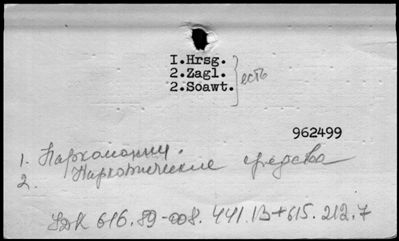 I.Hrsg.
2.Zagl. есть
2.Soawt.
962499
1. Наркомании.
2. Наркотические средства
УДК 616.89-008.441.13+615.212.7